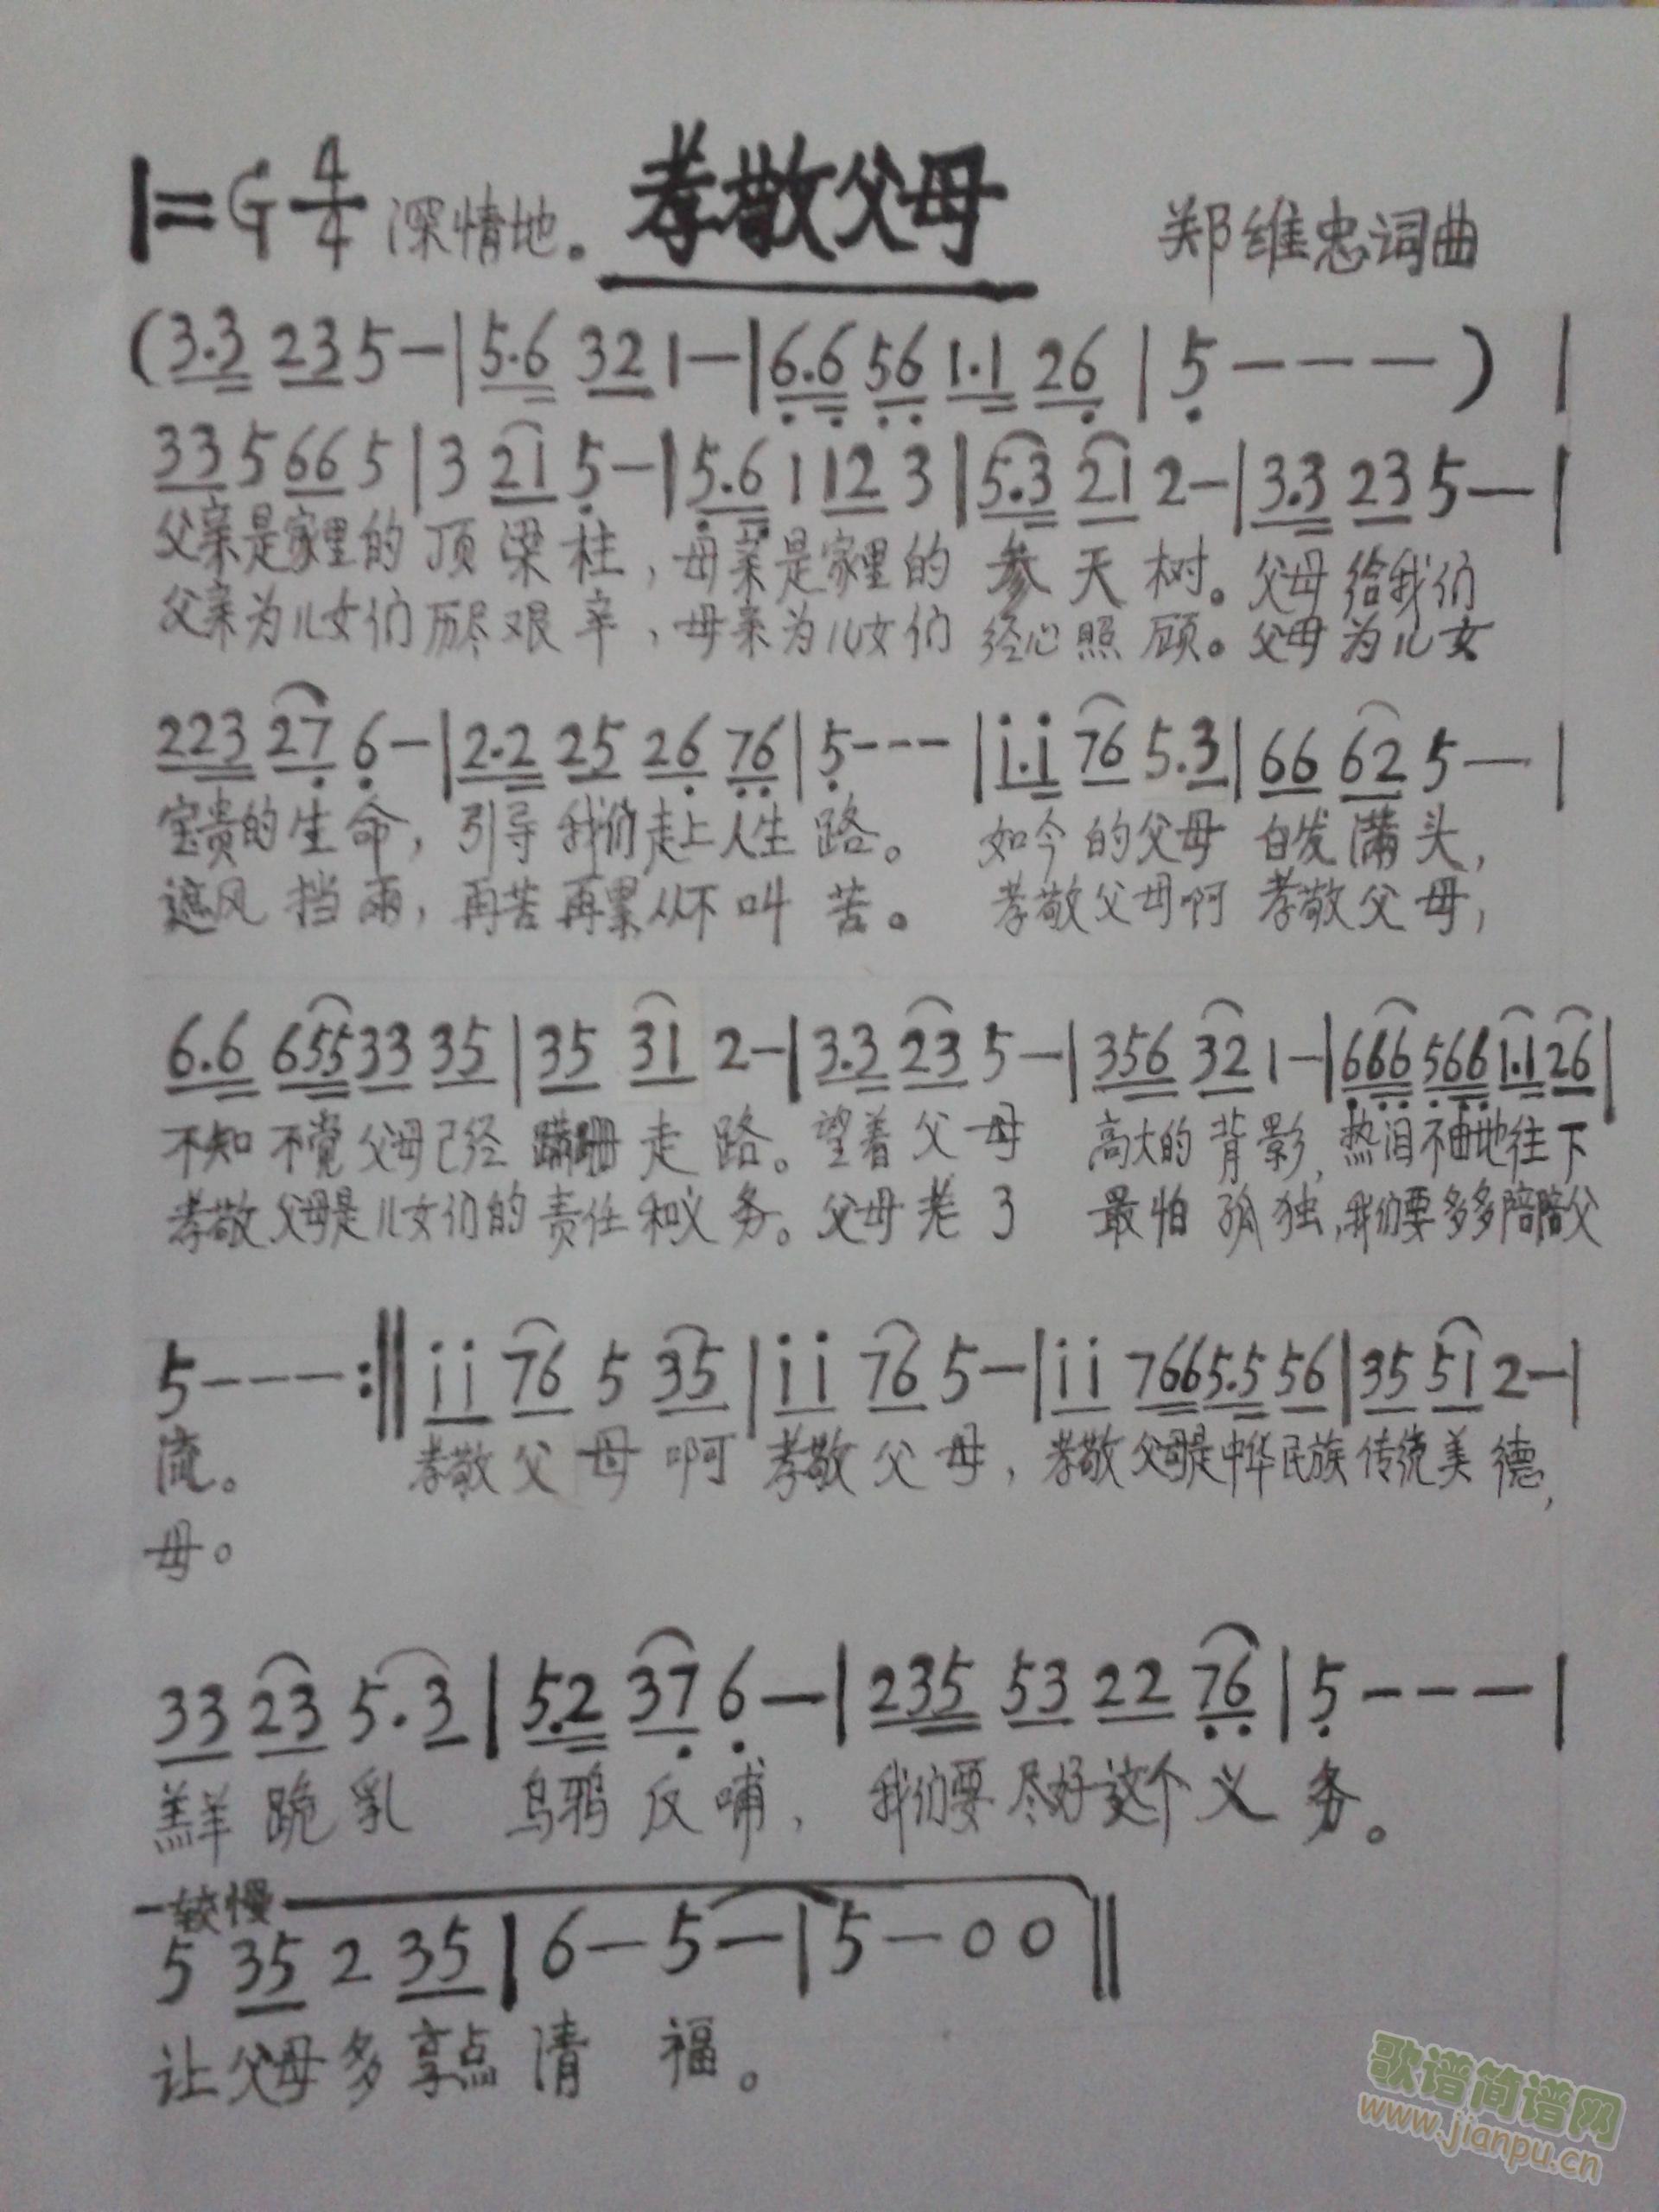 1=G 4/4 深情地。 孝敬父母 郑维忠词曲
(3.3 23 5—|5.6 32 1—|6.6 56 1.1 26|5---)|
33 5 66 5|3 21 5—|5.6 1 12 3|5.3 21 2—|3.3 23 5—|
父亲是家里的 顶 梁 柱，母亲是家里的 参 天 树。父母 给我们
父亲为儿女们历尽艰 辛，母亲为儿女们 经心照 顾。父母 为儿女
223 27 6—|2.2 25 26 76|5---|i.i 76 5.3|66 62 5—|
宝贵的 生 命，引导 我们走上人生 路。 如今的父母 白发满 头，
遮风 挡 雨，再苦再累从不叫 苦。 孝敬父母啊 孝敬父 母，
6.6 65533 35|35 31 2—|3.3 23 5—|356 32 1—|666 566 1.1 26|
不知 不觉父母已经 蹒跚 走 路。望着 父 母 高大的 背 影，热泪不由地往下
孝敬父母是儿女们的 责任 和义 务。父母 老 了 最怕 孤 独，我们要多多陪陪父
5---:‖ii 76 5 35|ii 76 5—|ii 7665.5 56|35 51 2—|
流。 孝敬 父 母 啊 孝敬 父 母，孝敬父母是中华民族 传统美 德，
母。
33 23 5.3|5.2 37 6—|235 53 22 76|5---|
羔羊 跪 乳 乌鸦 反 哺，我们要 尽好这个 义 务。
较慢
5 35 2 35|6—5—|5—00‖
让 父母 多 享点 清 福。
歌谱简谱网
www.jianpu.cn